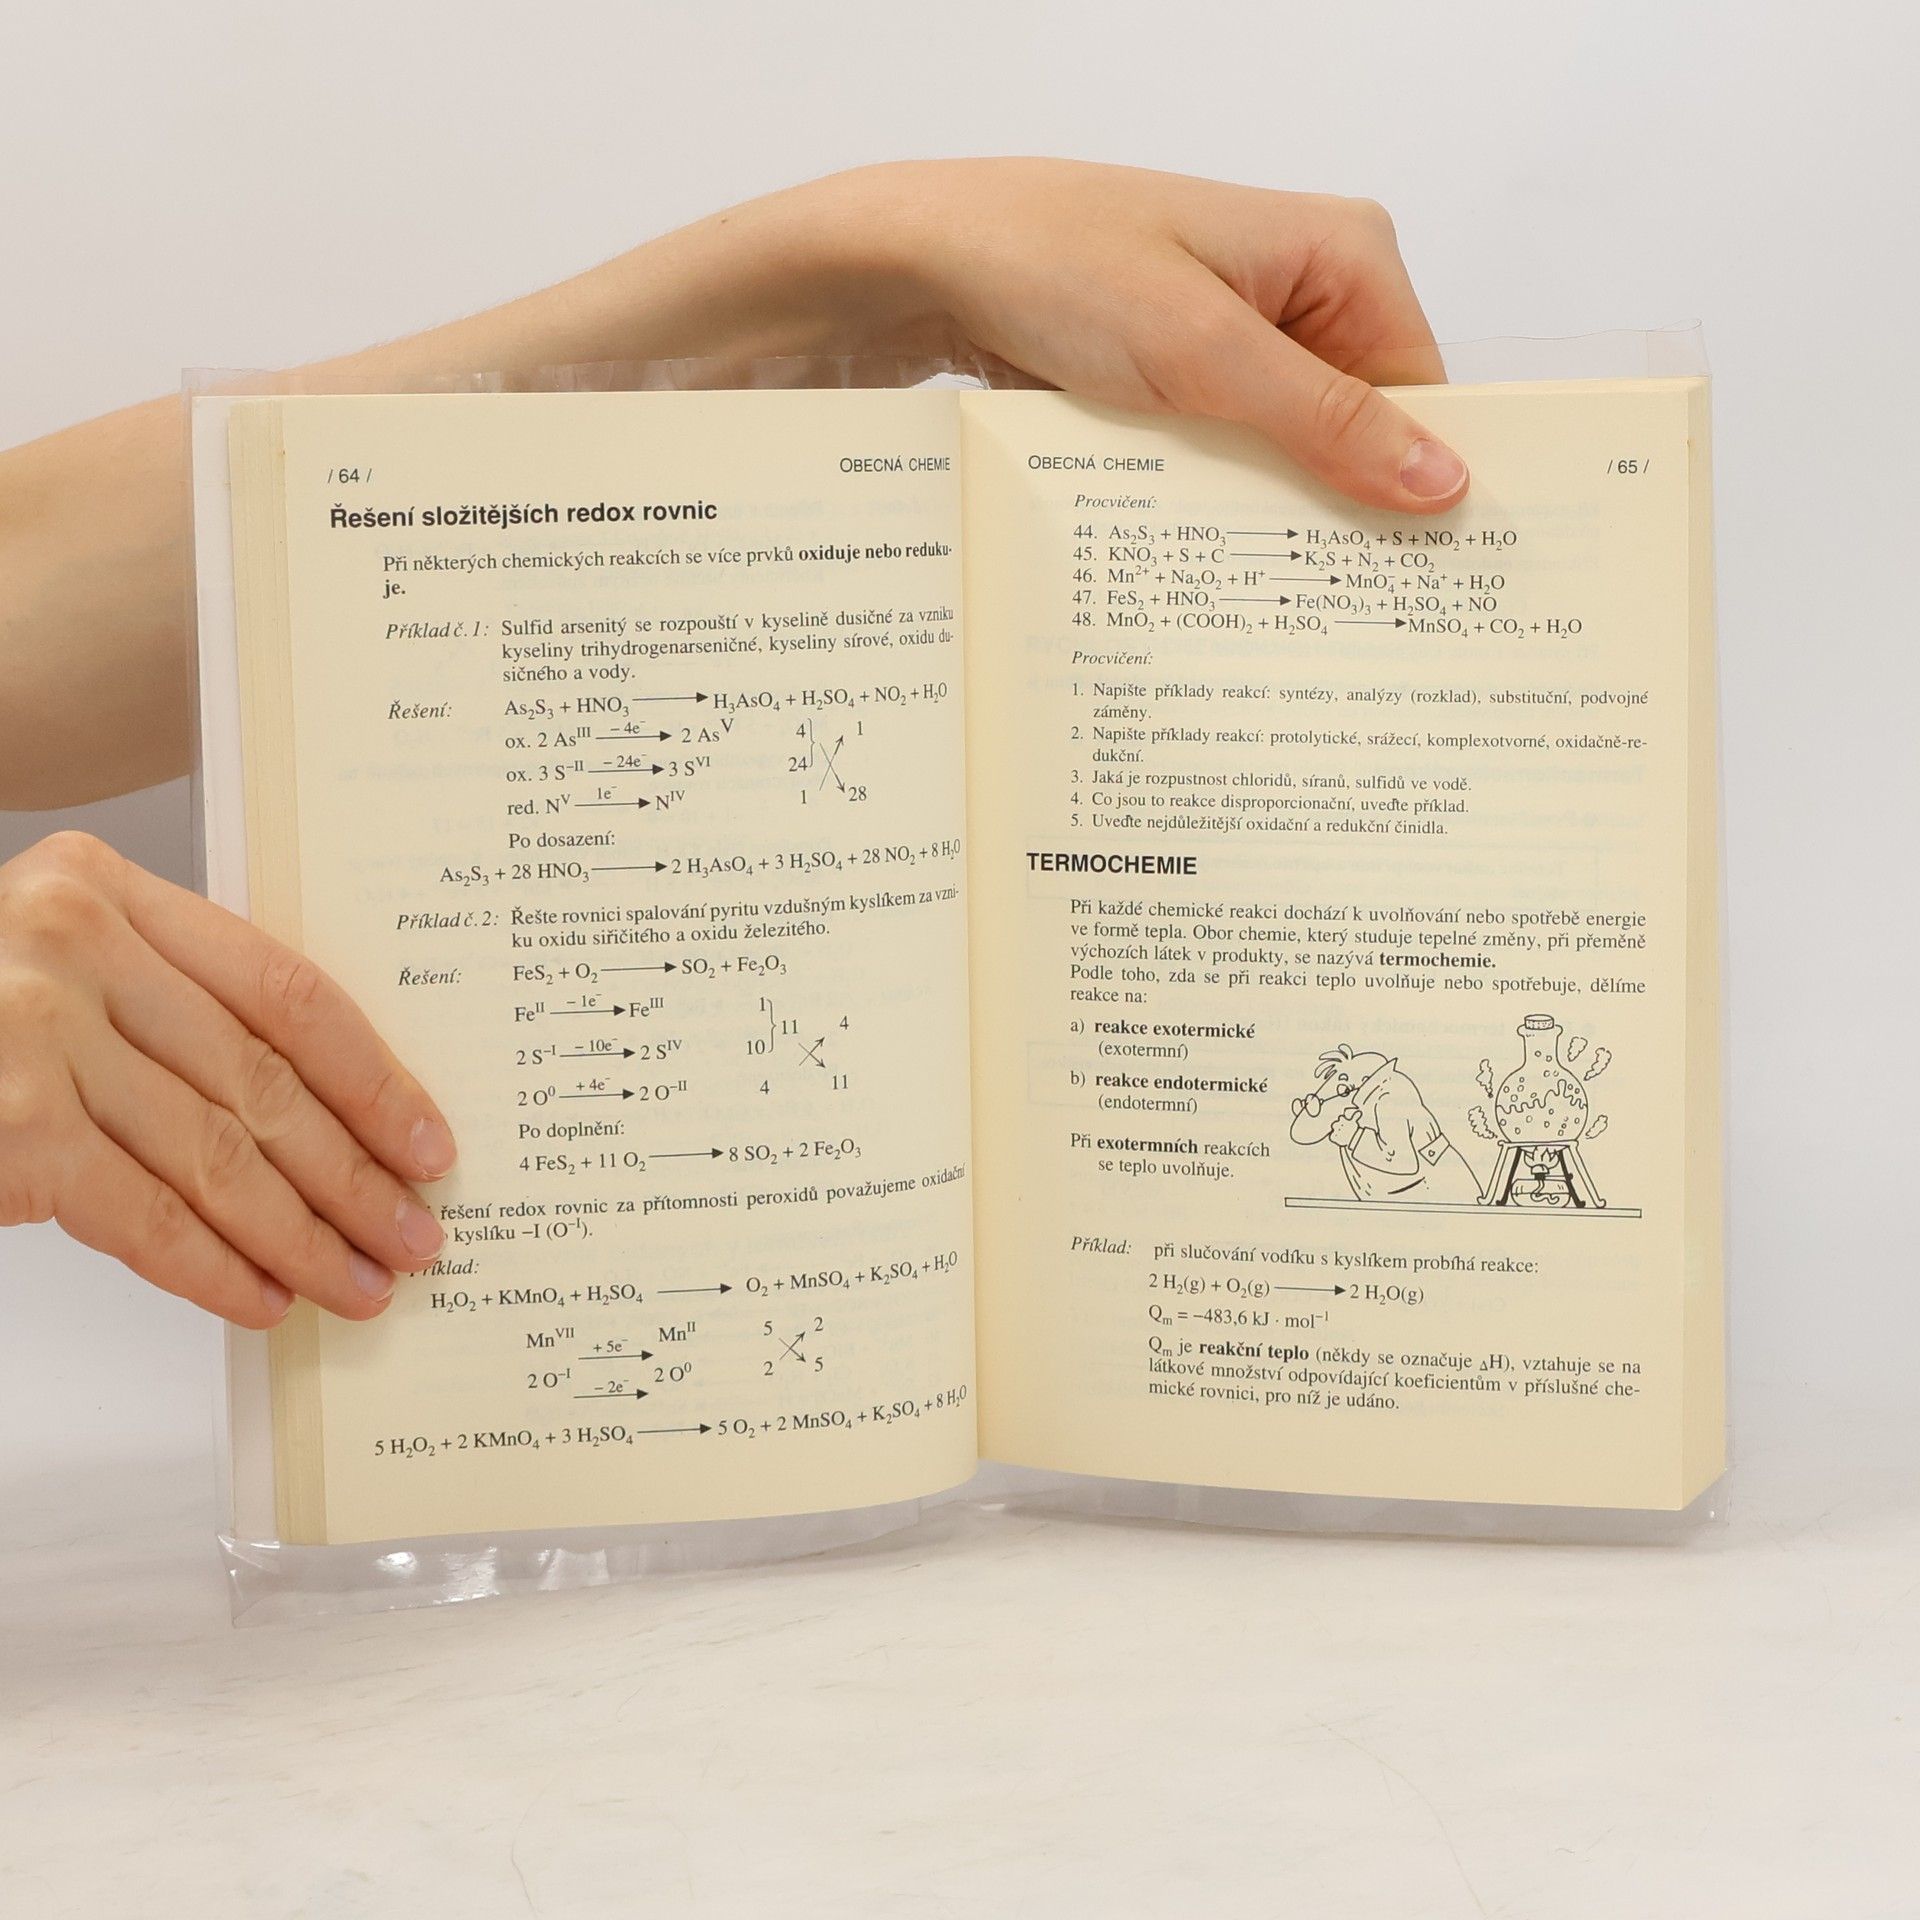 / 64 /
OBECNÁ CHEMIE
Řešení složitějších redox rovnic
Při některých chemických reakcích se více prvků oxiduje nebo reduku-
je.
Příklad č. 1: Sulfid arsenitý se rozpouští v kyselině dusičné za vzniku
kyseliny trihydrogenarseničné, kyseliny sírové, oxidu du-
sičného a vody.
Řešení: As₂S₃ + HNO₃ ⟶ H₃AsO₄ + H₂SO₄ + NO₂ + H₂O
ox. 2 Asᴵᴵᴵ – 4e⁻ ⟶ 2 Asⱽ 4 1
ox. 3 S⁻ᴵᴵ – 24e⁻ ⟶ 3 Sⱽᴵ 24
red. Nⱽ 1e⁻ ⟶ Nᴵⱽ 1 28
Po dosazení:
As₂S₃ + 28 HNO₃ ⟶ 2 H₃AsO₄ + 3 H₂SO₄ + 28 NO₂ + 8 H₂O
Příklad č. 2: Řešte rovnici spalování pyritu vzdušným kyslíkem za vzni-
ku oxidu siřičitého a oxidu železitého.
Řešení: FeS₂ + O₂ ⟶ SO₂ + Fe₂O₃
Feᴵᴵ – 1e⁻ ⟶ Feᴵᴵᴵ 1
11 4
2 S⁻ᴵ – 10e⁻ ⟶ 2 Sᴵⱽ 10
2 O⁰ + 4e⁻ ⟶ 2 O⁻ᴵᴵ 4 11
Po doplnění:
4 FeS₂ + 11 O₂ ⟶ 8 SO₂ + 2 Fe₂O₃
řešení redox rovnic za přítomnosti peroxidů považujeme oxidační
kyslíku –I (O⁻ᴵ).
H₂O₂ + KMnO₄ + H₂SO₄ ⟶ O₂ + MnSO₄ + K₂SO₄ + H₂O
Mnⱽᴵᴵ + 5e⁻ ⟶ Mnᴵᴵ 5 2
2 O⁻ᴵ – 2e⁻ ⟶ 2 O⁰ 2 5
5 H₂O₂ + 2 KMnO₄ + 3 H₂SO₄ ⟶ 5 O₂ + 2 MnSO₄ + K₂SO₄ + 8 H₂O
OBECNÁ CHEMIE
/ 65 /
Procvičení:
44. As₂S₃ + HNO₃ ⟶ H₃AsO₄ + S + NO₂ + H₂O
45. KNO₃ + S + C ⟶ K₂S + N₂ + CO₂
46. Mn²⁺ + Na₂O₂ + H⁺ ⟶ MnO₄⁻ + Na⁺ + H₂O
47. FeS₂ + HNO₃ ⟶ Fe(NO₃)₃ + H₂SO₄ + NO
48. MnO₂ + (COOH)₂ + H₂SO₄ ⟶ MnSO₄ + CO₂ + H₂O
Procvičení:
1. Napište příklady reakcí: syntézy, analýzy (rozklad), substituční, podvojné
záměny.
2. Napište příklady reakcí: protolytické, srážecí, komplexotvorné, oxidačně-re-
dukční.
3. Jaká je rozpustnost chloridů, síranů, sulfidů ve vodě.
4. Co jsou to reakce disproporcionační, uveďte příklad.
5. Uveďte nejdůležitější oxidační a redukční činidla.
TERMOCHEMIE
Při každé chemické reakci dochází k uvolňování nebo spotřebě energie
ve formě tepla. Obor chemie, který studuje tepelné změny, při přeměně
výchozích látek v produkty, se nazývá termochemie.
Podle toho, zda se při reakci teplo uvolňuje nebo spotřebuje, dělíme
reakce na:
a) reakce exotermické
(exotermní)
b) reakce endotermické
(endotermní)
Při exotermních reakcích
se teplo uvolňuje.
Příklad: při slučování vodíku s kyslíkem probíhá reakce:
2 H₂(g) + O₂(g) ⟶ 2 H₂O(g)
Qₘ = –483,6 kJ · mol⁻¹
Qₘ je reakční teplo (někdy se označuje ΔH), vztahuje se na
látkové množství odpovídající koeficientům v příslušné che-
mické rovnici, pro níž je udáno.